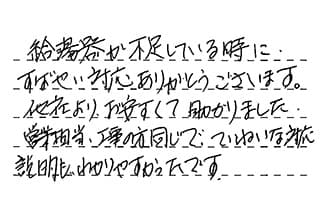 給湯器が不足している時に、
すばやい対応ありがとうございます。
他社よりお安すくて助かりました。
営業担当、工事の方同じで、ていねいな対応
説明もわかりやすかったです。